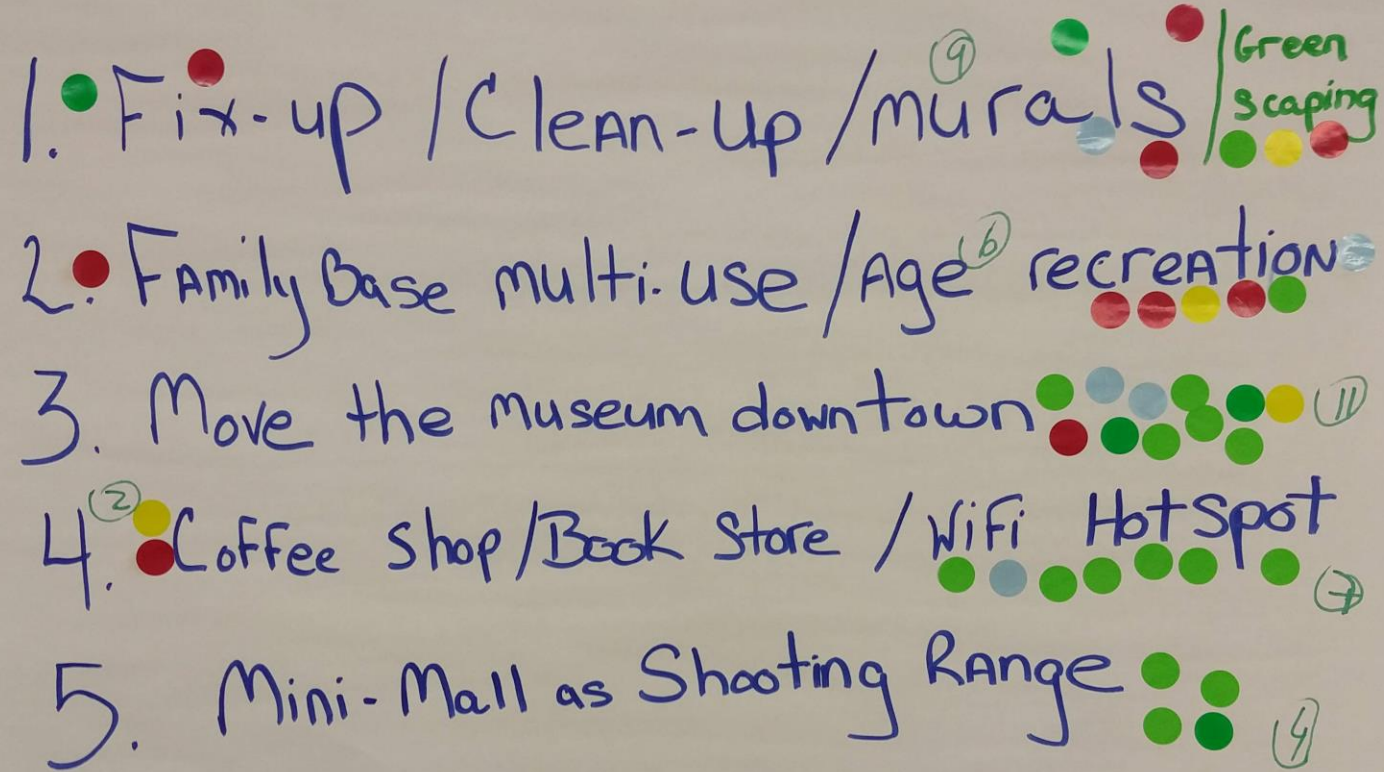 1. Fix-up / Clean-Up / murals / Green scaping
9
2. Family Base multi-use / Age recreation
6
3. Move the museum downtown
11
4. Coffee Shop / Book Store / WiFi HotSpot
2
7
5. Mini-Mall as Shooting Range
4